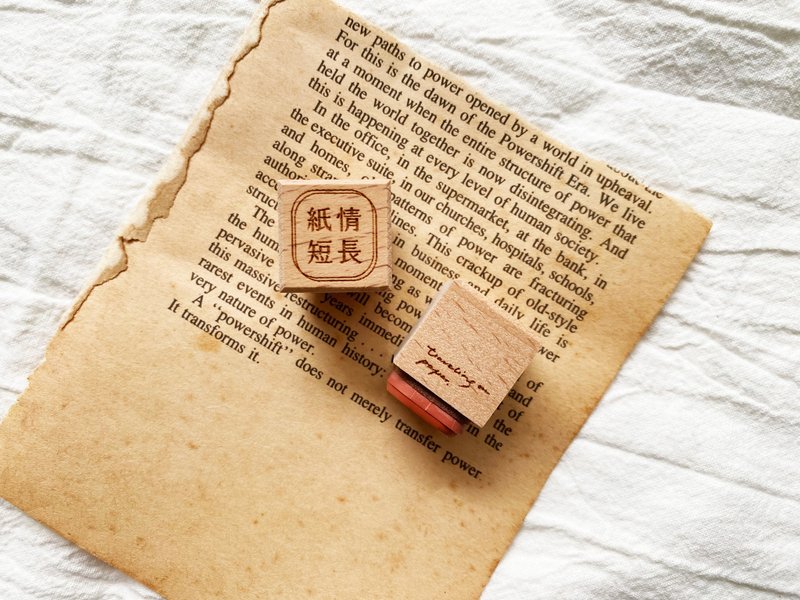 about the
new paths to power opened by a world in upheaval.
For this is the dawn of the Powershift Era. We live
at a moment when the entire structure of power that
held the world together is now disintegrating. And
this is happening at every level of human society.
In the office, in the supermarket, at the bank, in
the executive suite, in our churches, hospitals, schools,
and homes, patterns of power are fracturing
along lines. This crackup of old-style
in business and daily life is
The will of
the and
pervasive years of
this massive restructuring in the
rarest events in human history:
very nature of power.
A "powershift" does not merely transfer power.
It transforms it.
紙情
短長
traveling on
paper